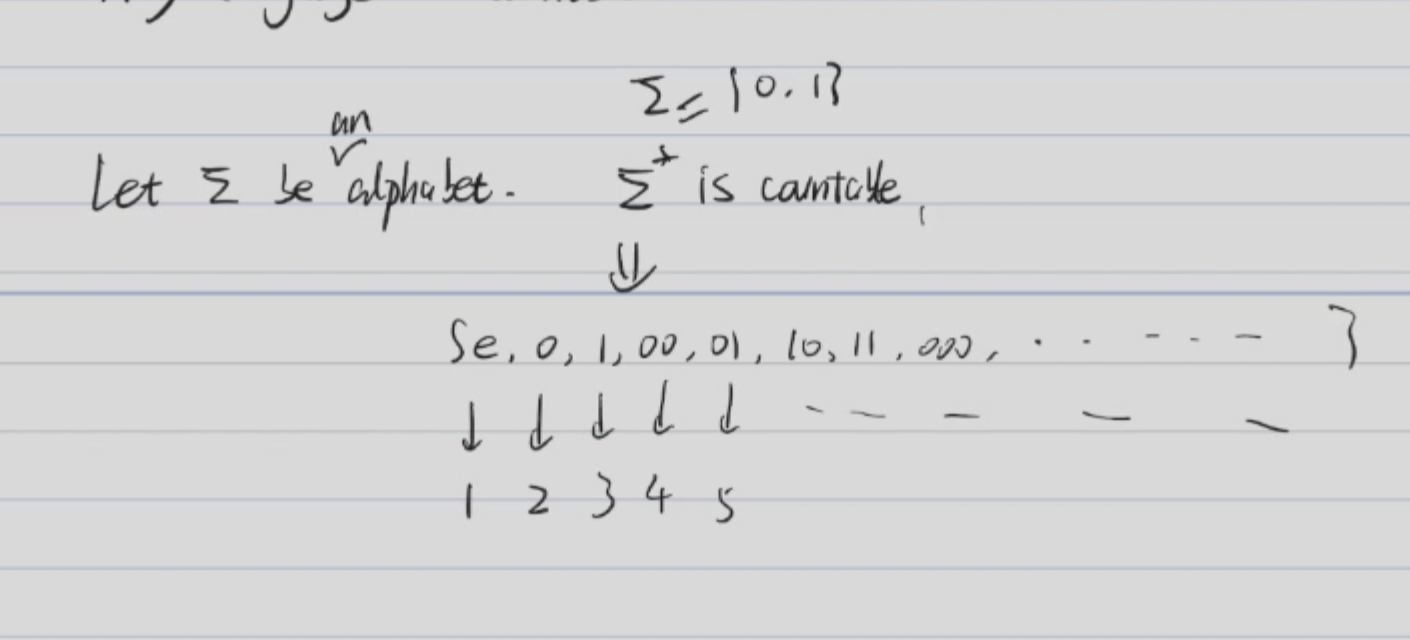 Σ = {0, 1}
an
Let Σ be alphabet. Σ* is countable,
⇓
{e, 0, 1, 00, 01, 10, 11, 000, . . - - - }
↓ ↓ ↓ ↓ ↓ - - - - -
1 2 3 4 5